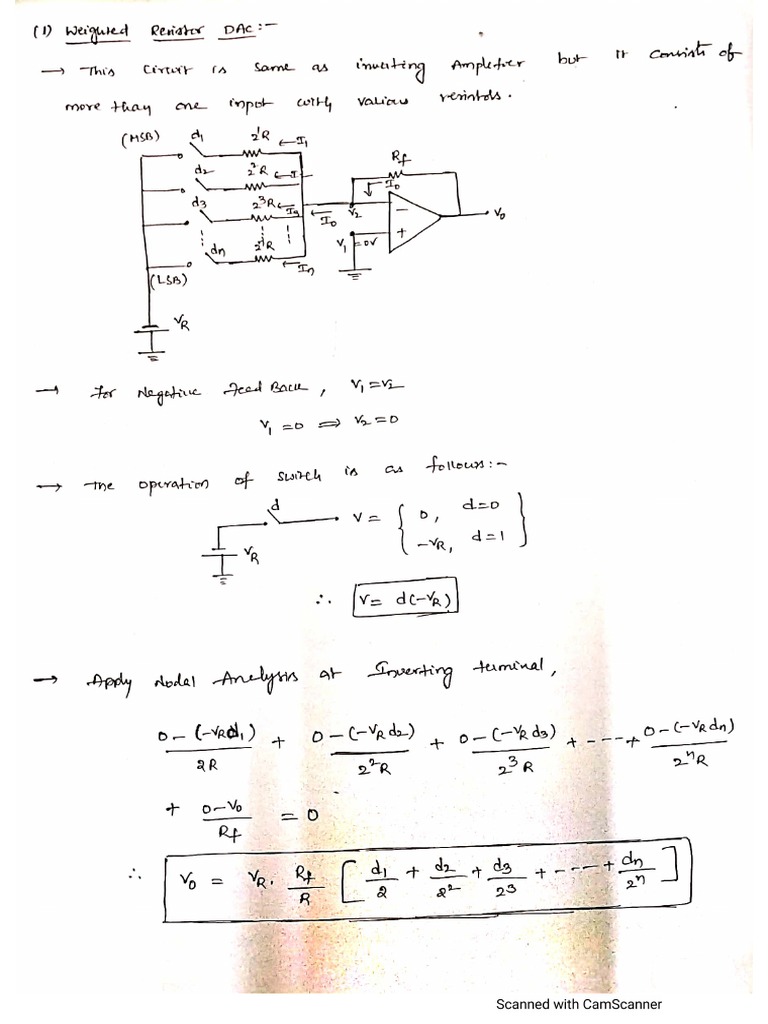 (1) Weighted Resistor DAC :-
→ This circuit is same as inverting Amplifier but it consists of
more than one input with various resistors.
(MSB) d1 2¹R ← I1
d2 2²R ← I
d3 2³R ← I3
dn 2ⁿR ← In
(LSB)
VR
Rf
I0
I0 V2
V1 = 0V
-
+
V0
→ For Negative Feed Back, V1 = V2
V1 = 0 ⇒ V2 = 0
→ The operation of switch is as follows :-
d
VR
V = { 0, d=0
-VR, d=1 }
∴ V = d(-VR)
→ Apply Nodal Analysis at Inverting terminal,
0-(-VRd1)/2R + 0-(-VRd2)/2²R + 0-(-VRd3)/2³R + ---- + 0-(-VRdn)/2ⁿR
+ 0-V0/Rf = 0
∴ V0 = VR. Rf/R [ d1/2 + d2/2² + d3/2³ + ---- + dn/2ⁿ ]
Scanned with CamScanner